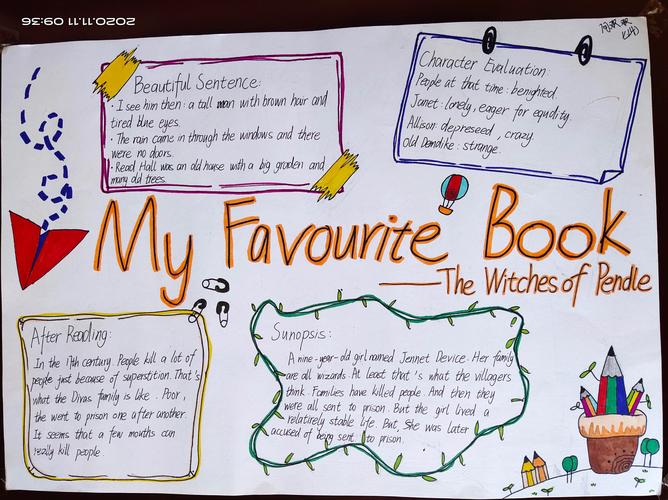 2020.11.11 09:36
Beautiful Sentence:
· I see him then: a tall man with brown hair and
tired blue eyes.
· The rain came in through the windows and there
were no doors.
· Read Hall was an old house with a big graden and
many old trees.
Character Evaluation:
People at that time: benighted.
Janet: lonely, eager for equality.
Allison: depreseed, crazy.
Old Demdike: strange.
My Favourite Book
——The Witches of Pendle
After Reading:
In the 17th century People kill a lot of
people just because of superstition. That's
what the Divas family is like. Poor,
the went to prison one after another.
It seems that a few mouths can
really kill people
Sunopsis:
A nine-year-old girl named Jennet Device. Her family
are all wizards. At least that's what the villagers
think. Families have killed people. And then they
were all sent to prison. But the girl lived a
relatirely stable life. But, She was later
accused of being sent to prison.